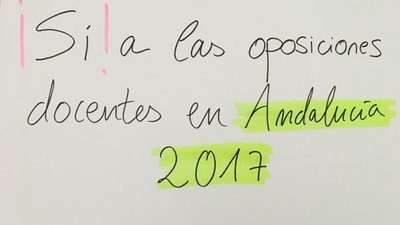 ¡Sí! a las oposiciones
docentes en Andalucía
2017